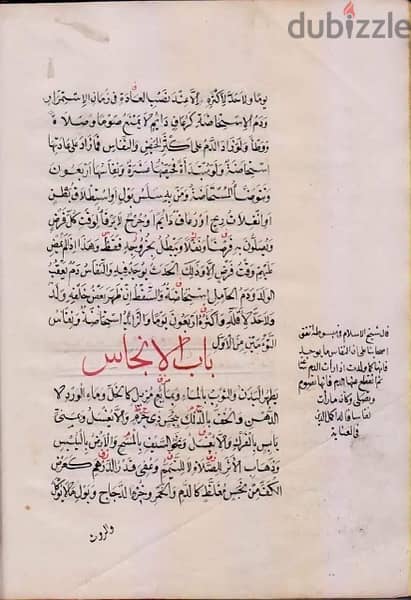 dubizzle
يوما ولا حد لاكثره الا عند نصب العادة في زمان الاستمرار
ودم الاستحاضة كرعاف دائم لا يمنع صوما وصلاة
ووطأ ولو زاد الدم على اكثر الحيض والنفاس فما زاد على عادتها
استحاضة ولو مبتدأة فحيضها عشرة ونفاسها اربعون
وتتوضأ المستحاضة ومن به سلس بول او استطلاق بطن
او انفلات ريح او رعاف دائم او جرح لا يرقأ لوقت كل فرض
ويصلون به فرضا ونفلا ويبطل بخروجه فقط وهذا اذا لم يمض
عليهم وقت فرض الا وذلك الحدث يوجد فيه والنفاس دم يعقب
الولد ودم الحامل استحاضة والسقط ان ظهر بعض خلقه ولد
ولا حد لاقله واكثره اربعون يوما والزائد استحاضة ونفاس
التوءمين من الاول
باب الانجاس
يطهر البدن والثوب بالماء وبمائع مزيل كالخل وماء الورد لا
الدهن والخف بالدلك بنجس ذي جرم والا يغسل وبمني
يابس بالفرك والا يغسل ونحو السيف بالمسح والارض باليبس
وذهاب الاثر للصلاة لا للتيمم وعفي قدر الدرهم كعرض
الكف من نجس مغلظ كالدم والخمر وخرء الدجاج وبول ما لا يؤكل
والروث
قال شيخ الاسلام في مبسوطه اتفق
اصحابنا على ان النفاس ما يوجد
فانها كما ولدت اذا رأت الدم
ثم انقطع عنها الدم فانها تصوم
وتصلي وكان ما رأت
نفاسا
في العناية